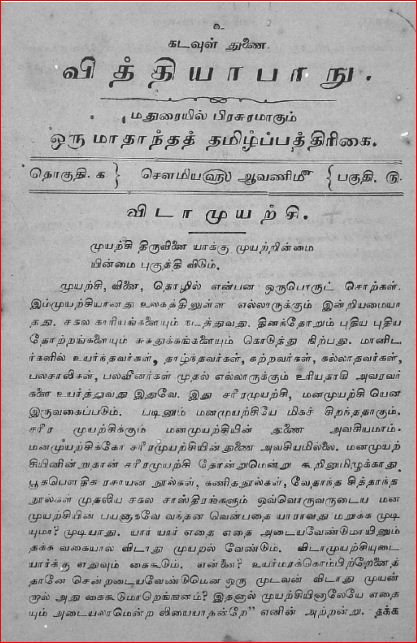 உ
கடவுள் துணை.
வித்தியாபாநு.
மதுரையில் பிரசுரமாகும்
ஒரு மாதாந்தத் தமிழ்ப்பத்திரிகை.
தொகுதி. க } சௌமியஹு ஆவணிமீ { பகுதி. ரு.
விடாமுயற்சி.
முயற்சி திருவினை யாக்கு முயற்றின்மை
யின்மை புகுத்தி விடும்.
முயற்சி, வினை, தொழில் என்பன ஒருபொருட் சொற்கள்.
இம்முயற்சியானது உலகத்திலுள்ள எல்லாருக்கும் இன்றியமையா
தது. சகல காரியங்களையும் நடத்துவது. தினந்தோறும் புதிய புதிய
தோற்றங்களையும் சுகதுக்கங்களையும் கொடுத்து நிற்பது. மானிட
ர்களில் உயர்ந்தவர்கள், தாழ்ந்தவர்கள், கற்றவர்கள், கல்லாதவர்கள்,
பலசாலிகள், பலவீனர்கள் முதல் எல்லாருக்கும் உரியதாகி அவரவர்
களை உயர்த்துவது இதுவே. இது சரீரமுயற்சி, மனமுயற்சி யென
இருவகைப்படும். படினும் மனமுயற்சியே மிகச் சிறந்ததாகும்.
சரீர முயற்சிக்கும் மனமுயற்சியின் துணை அவசியமாம்.
மனமுயற்சிக்கோ சரீரமுயற்சியின்துணை அவசியமில்லை. மனமுயற்
சியினின்றுதான் சரீரமுயற்சி தோன்றுமென்று கூறினுமிழுக்காது
பூகபௌதிக ரசாயன நூல்கள், கணிதநூல்கள், வேதாந்த சித்தாந்த
நூல்கள் முதலிய சகல சாஸ்திரங்களும் ஒவ்வொருவருடைய மன
முயற்சியின் பயனாகவே வந்தன வென்பதை யாராவது மறுக்க முடி
யுமா? முடியாது. யார் யார் எதை எதை அடையவேண்டுமாயினும்
தக்க வகையால் விடாது முயறல் வேண்டும். விடாமுயற்சியுடை
யார்க்கு எதுவும் கைகூடும். என்னை? உயர்மரக்கொம்பிற்றேனைத்
தானே சென்றடையவேண்டுமென ஒரு முடவன் விடாது முயன்
றால் அது கைகூடுமாறெங்ஙனம்? இதனால் முயற்சியினாலேயே எதை
யும் அடையலாமென்ற லியையாதன்றே" எனின் அற்றன்று. தக்க